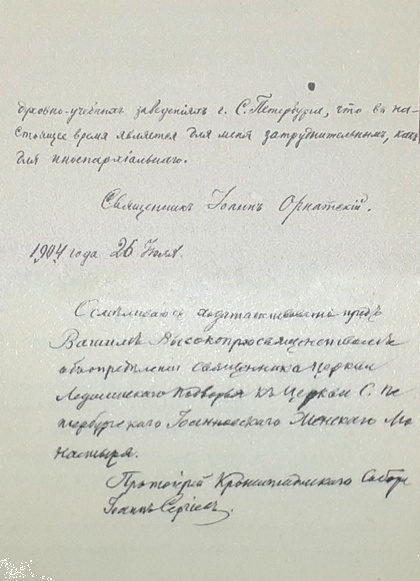 духовно-учебныхъ заведенiяхъ г. С. Петербурга, что въ на-
стоящее время является для меня затруднительнымъ, какъ
для иноепархiальнаго.
Священникъ Iоаннъ Орнатскiй.
1904 года 26 Iюля.
Осмѣливаюсь ходатайствовать предъ
Вашимъ Высокопреосвященствомъ
объ опредѣленiи священника церкви
Подворья къ Церкви С. Пе-
тербургскаго Iоанновскаго Женскаго Мо-
настыря.
Протоiерей Кронштадтскаго Собора
Iоаннъ Сергiевъ.